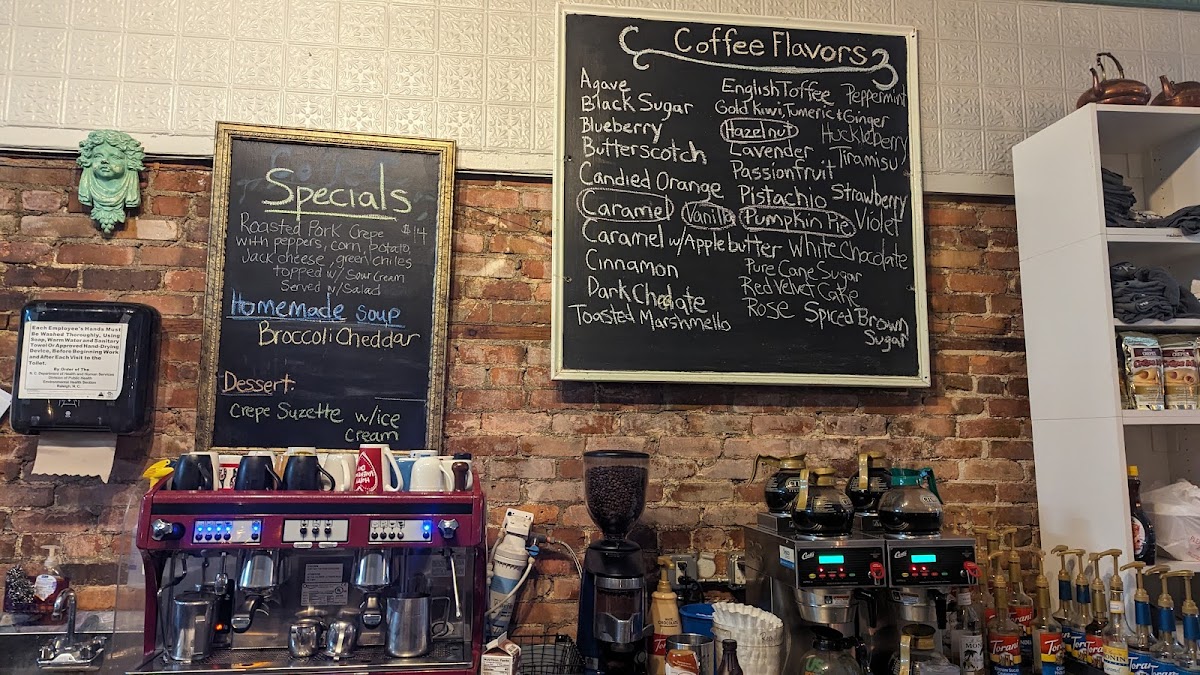 Specials
Roasted Pork Crepe $14
with peppers, corn, potato,
Jack cheese, green chiles
topped w/ Sour Cream
Served w/ Salad
Homemade Soup
Broccoli Cheddar
Dessert
Crepe Suzette w/ice
Cream
Coffee Flavors
Agave
Black Sugar
Blueberry
Butterscotch
Candied Orange
Caramel
Caramel w/Applebutter
Cinnamon
Dark Chocolate
Toasted Marshmello
English Toffee
Gold Kiwi, Tumeric & Ginger
Hazelnut
Lavender
Passionfruit
Pistachio
Vanilla
Pumpkin Pie
White Chocolate
Pure Cane Sugar
Red Velvet Cake
Rose
Peppermint
Huckleberry
Tiramisu
Strawberry
Violet
Spiced Brown
Sugar
Each Employee's Hands Must
Be Washed Thoroughly, Using
Soap, Warm Water and Sanitary
Towel Or Approved Hand-Drying
Device, Before Beginning Work
and After Each Visit to the
Toilet.
By Order of The
N.C. Department of Health and Human Services
Division of Public Health
Environmental Health Section
Raleigh, N.C.
Torani
Torani
Torani
Torani